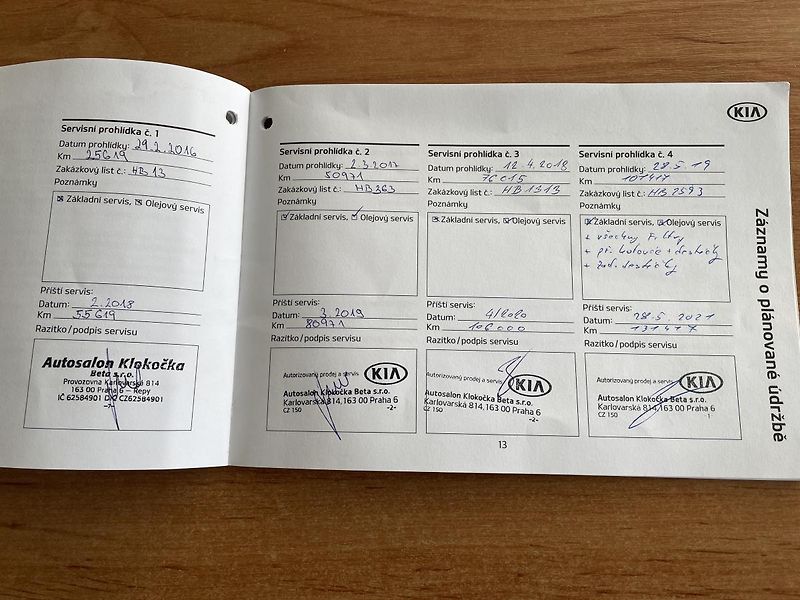 Servisní prohlídka č. 1
Datum prohlídky: 29.2.2016
Km 25619
Zakázkový list č.: HB13
Poznámky
Základní servis, Olejový servis
Příští servis:
Datum: 2.2018
Km 55619
Razítko/podpis servisu
Autosalon Klokočka
Beta s.r.o.
Provozovna Karlovarská 814
163 00 Praha 6 – Řepy
IČ 62584901 DIČ CZ62584901
-7-
Servisní prohlídka č. 2
Datum prohlídky: 2.3.2017
Km 50971
Zakázkový list č.: HB363
Poznámky
Základní servis, Olejový servis
Příští servis:
Datum: 3.2019
Km 80971
Razítko/podpis servisu
Autorizovaný prodej a servis KIA
Autosalon Klokočka Beta s.r.o.
Karlovarská 814,163 00 Praha 6
CZ 150 -2-
Servisní prohlídka č. 3
Datum prohlídky: 12.4.2018
Km 76015
Zakázkový list č.: HB1313
Poznámky
Základní servis, Olejový servis
Příští servis:
Datum: 4/2020
Km 106000
Razítko/podpis servisu
Autorizovaný prodej a servis KIA
Autosalon Klokočka Beta s.r.o.
Karlovarská 814,163 00 Praha 6
CZ 150 -2-
KIA
Servisní prohlídka č. 4
Datum prohlídky: 28.5.19
Km 101417
Zakázkový list č.: HB2593
Poznámky
Základní servis, Olejový servis
+ všechny filtry
+ př. kotouče + destičky
+ zad. destičky
Příští servis:
Datum: 28.5.2021
Km 131417
Razítko/podpis servisu
Autorizovaný prodej a servis KIA
Autosalon Klokočka Beta s.r.o.
Karlovarská 814,163 00 Praha 6
CZ 150
Záznamy o plánované údržbě
13